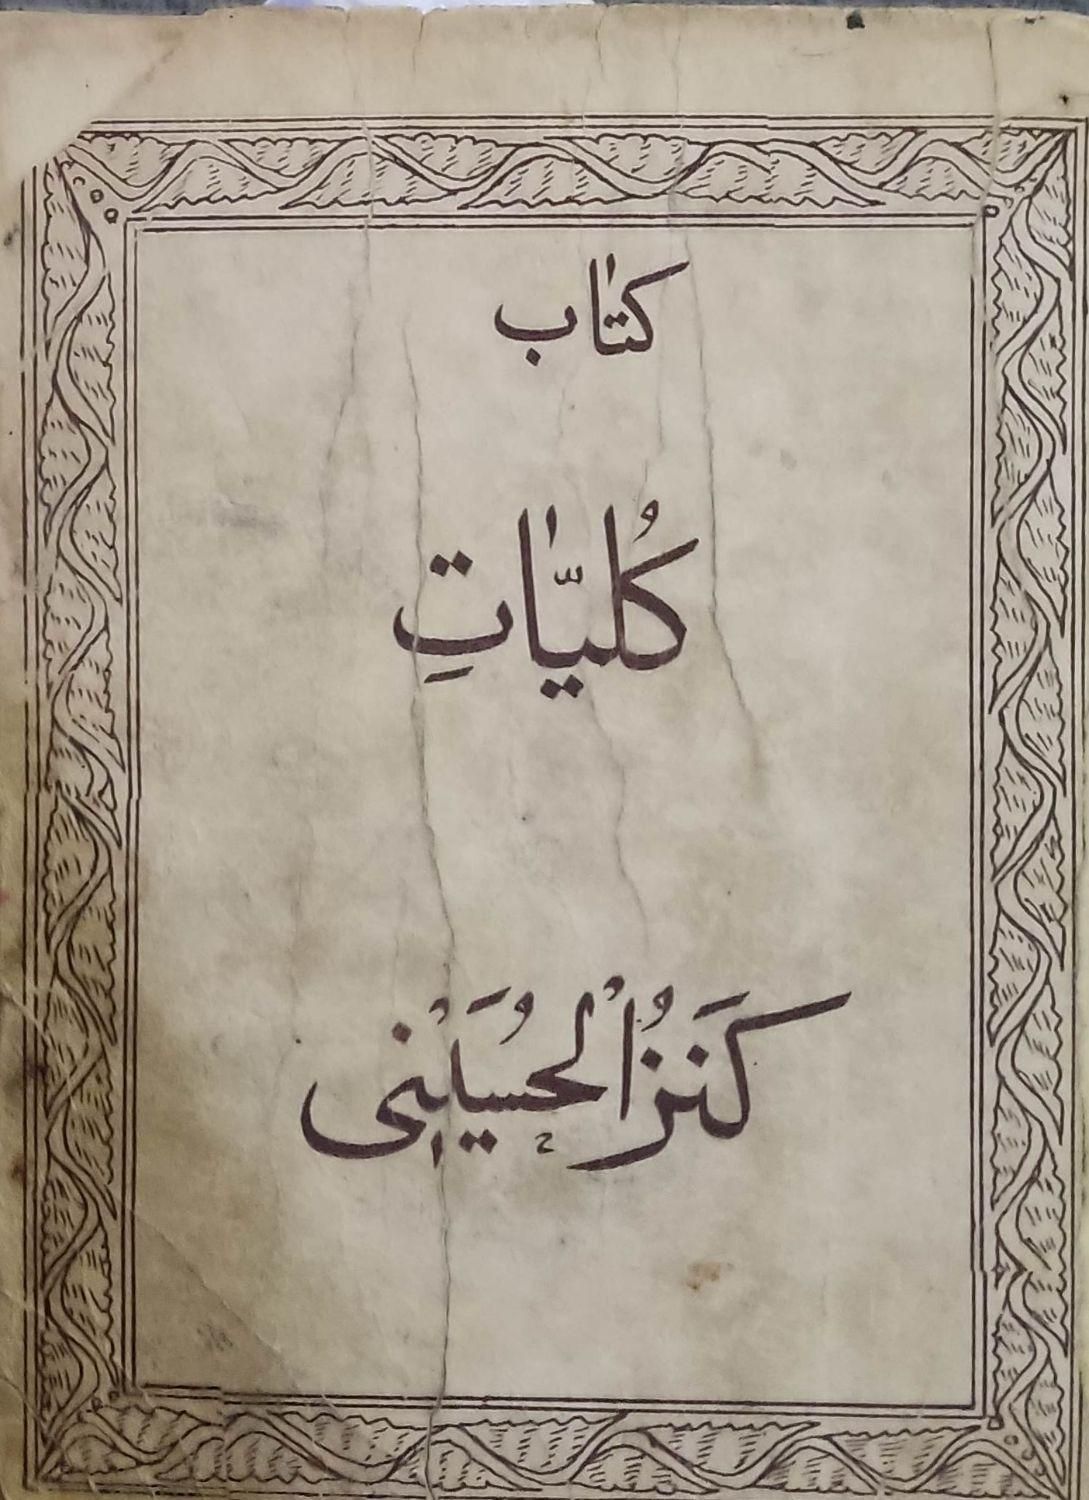 کتاب
کُلیّاتِ
کَنزُالحُسَینی